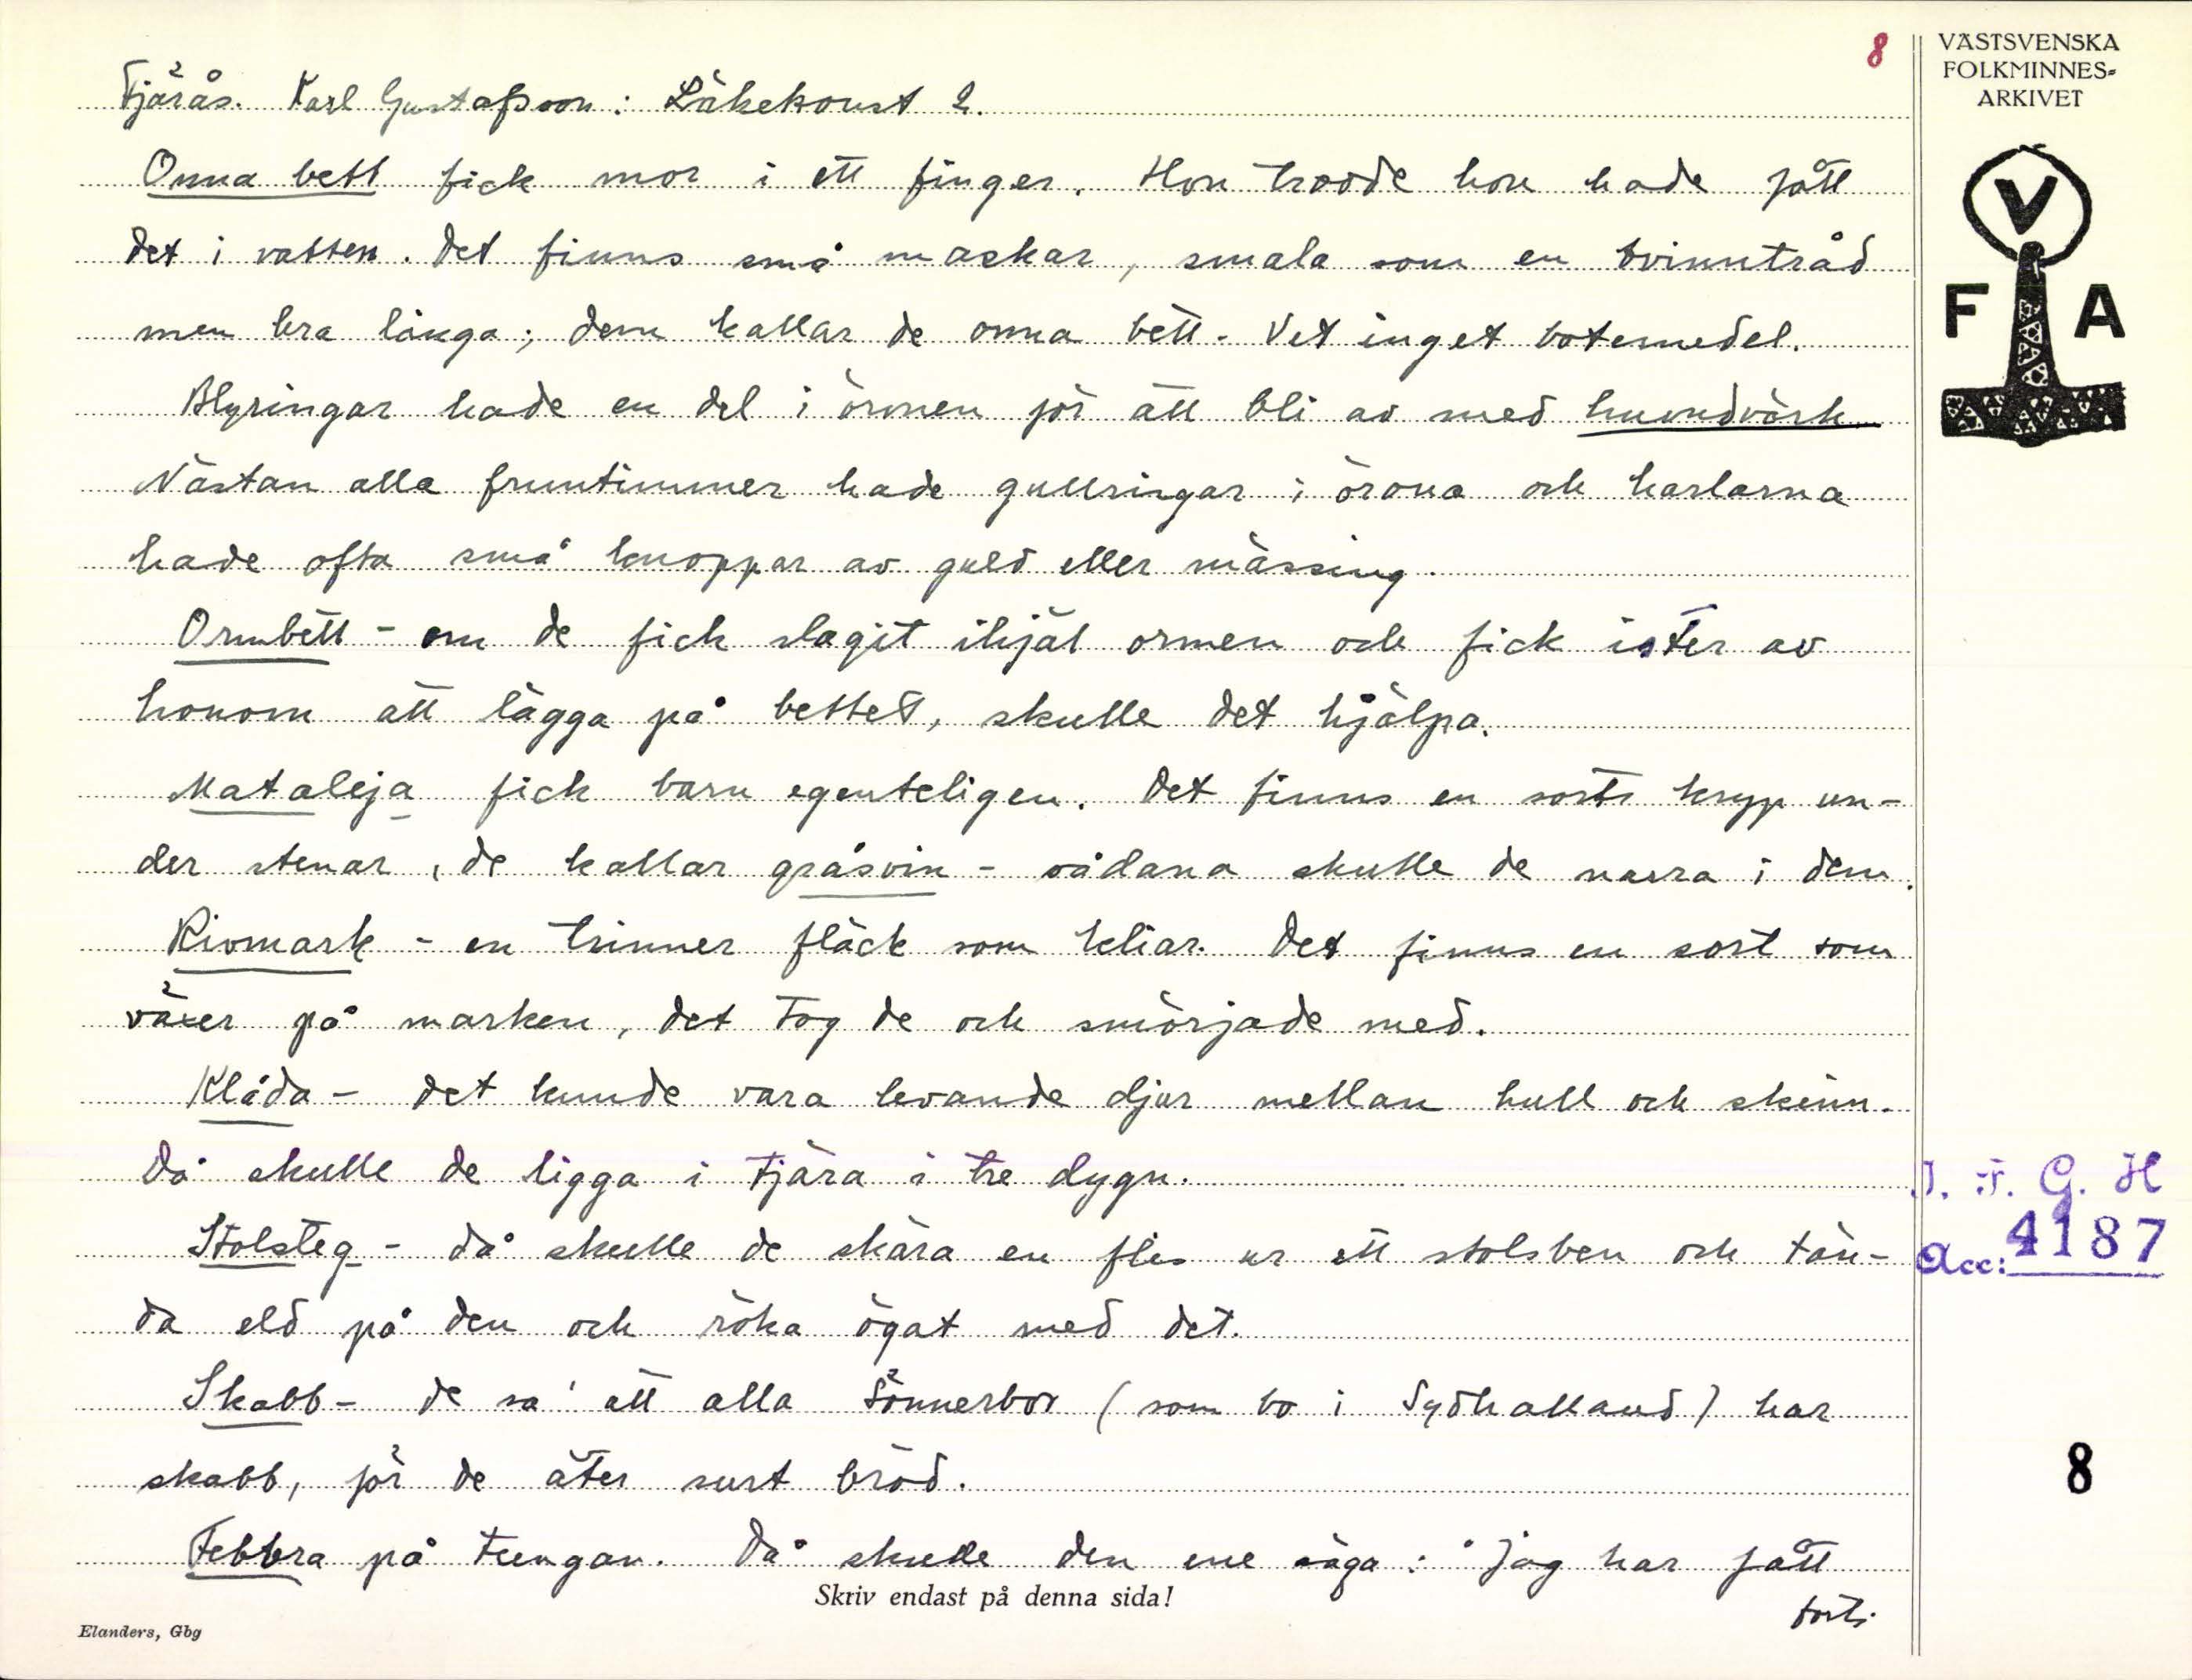 8
VÄSTSVENSKA
FOLKMINNES-
ARKIVET
V
F A
Fjärås. Karl Gustafsson: Läkekonst 2.
Onna bett fick mor i ett finger. Hon trodde hon hade fått
det i vatten. Det finns små maskar, smala som en tvinntråd
men bra långa; dem kallar de onna bett. Vet inget botemedel.
Blyringar hade en del i öronen för att bli av med huvudvärk
Nästan alla fruntimmer hade gullringar i örona och karlarna
hade ofta små knoppar av guld eller mässing.
Ormbett - om de fick slagit ihjäl ormen och fick ister av
honom att lägga på bettet, skulle det hjälpa.
Mataleja fick barn egenteligen. Det finns en sorts kryp un-
der stenar, de kallar gråsvin - sådana skulle de narra i dem.
Rivmark - en trinner fläck som kliar. Det finns en sort som
växer på marken, det tog de och smörjade med.
Klåda - det kunde vara levande djur mellan hull och skinn.
Då skulle de ligga i tjära i tre dygn.
Stolsteg - då skulle de skära en flis ur ett stolsben och tän-
da eld på den och röka ögat med det.
Skabb - de sa' att alla sönnerbor (som bo i Sydhalland) har
skabb, för de äter surt bröd.
Febbra på tungan. Då skulle den ene säga: "Jag har fått
forts.
I. F. G. H
Acc: 4187
8
Skriv endast på denna sida!
Elanders, Gbg